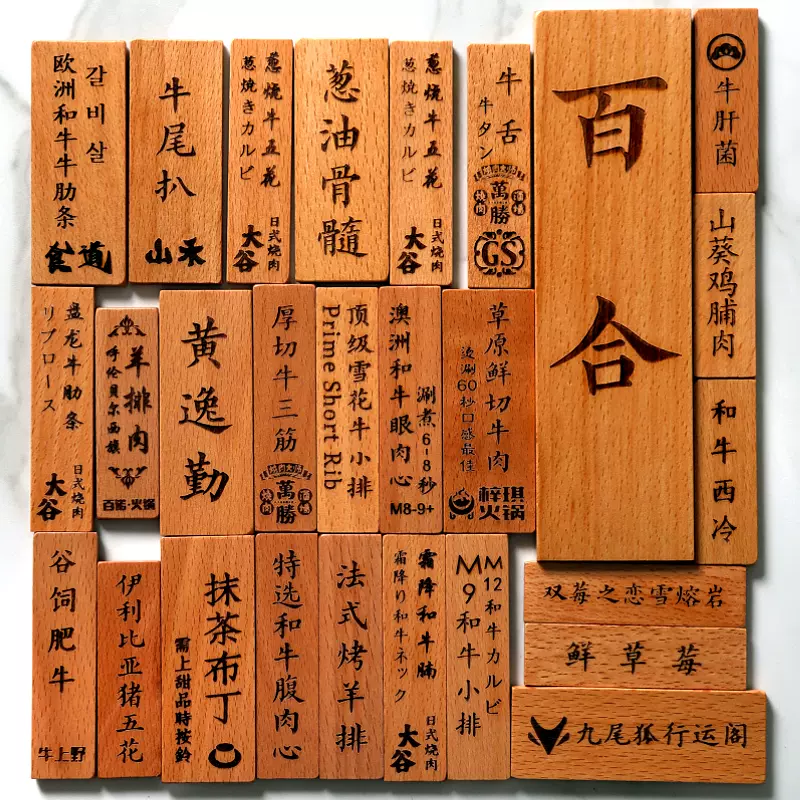 欧洲和牛牛肋条
갈비살
食道
牛尾扒
山禾
葱燒牛五花
葱焼きカルビ
日式烧肉
大谷
葱油骨髓
葱燒牛五花
葱焼きカルビ
日式烧肉
大谷
牛舌
牛タン
燒肉
萬勝
酒場
GS
百合
牛肝菌
山葵鸡脯肉
和牛西冷
盘龙牛肋条
リブロース
日式烧肉
大谷
羊排肉
呼伦贝尔西旗
百祐·火锅
黄逸勤
厚切牛三筋
燒肉
萬勝
酒場
顶级雪花牛小排
Prime Short Rib
澳洲和牛眼肉心
涮煮6-8秒
M8-9+
草原鲜切牛肉
烫涮60秒口感最佳
梓琪
火锅
谷饲肥牛
牛上野
伊利比亚猪五花
抹茶布丁
需上甜品時按鈴
特选和牛腹肉心
法式烤羊排
霜降和牛腩
霜降り和牛ネック
日式烧肉
大谷
M12和牛カルビ
M9和牛小排
双莓之恋雪熔岩
鲜草莓
九尾狐行运阁